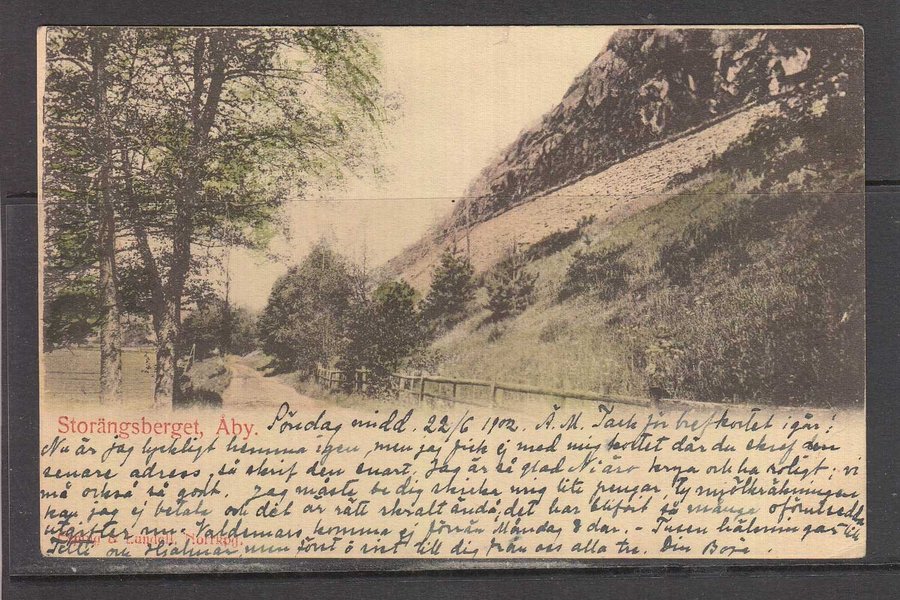 Storängsberget, Åby. Söndag midd. 22/6 1902. Ä. M. Tack för brefkortet igår!
Nu är jag lyckligt hemma igen, men jag fick ej med mig kortet där du skref den
senare adress, så skrif den snart. Jag är så glad Ni äro krya och ha roligt; vi
må också så godt. Jag måste be dig skicka mig lite pengar, ty mjölkräkningen
kan jag ej betala och det är rätt skralt ändå, det har blifvit så många oförutsedda
utgifter nu. Valdemars komma ej förrän Måndag 8 dar. - Tusen hälsningar till
Pelli och Hjalmar, men först o sist till dig från oss alla tre. Din
Lundell, Norrköp.